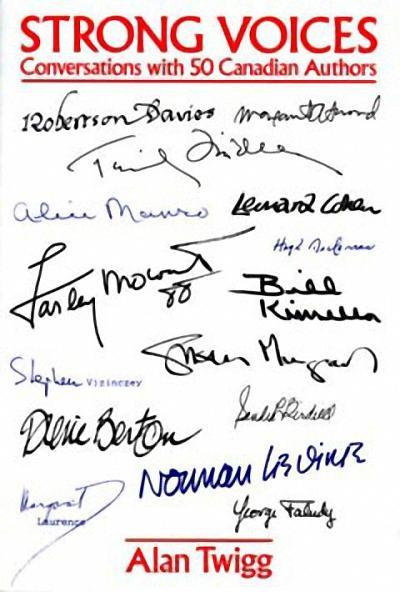 STRONG VOICES
Conversations with 50 Canadian Authors
Robertson Davies
Margaret Atwood
Timothy Findley
Alice Munro
Leonard Cohen
Hugh MacLennan
Farley Mowat
88
Bill
Kinsella
Susan Musgrave
Stephen Vizinczey
Sandra Birdsell
Pierre Berton
Norman Levine
Margaret
Laurence
George Faludy
Alan Twigg